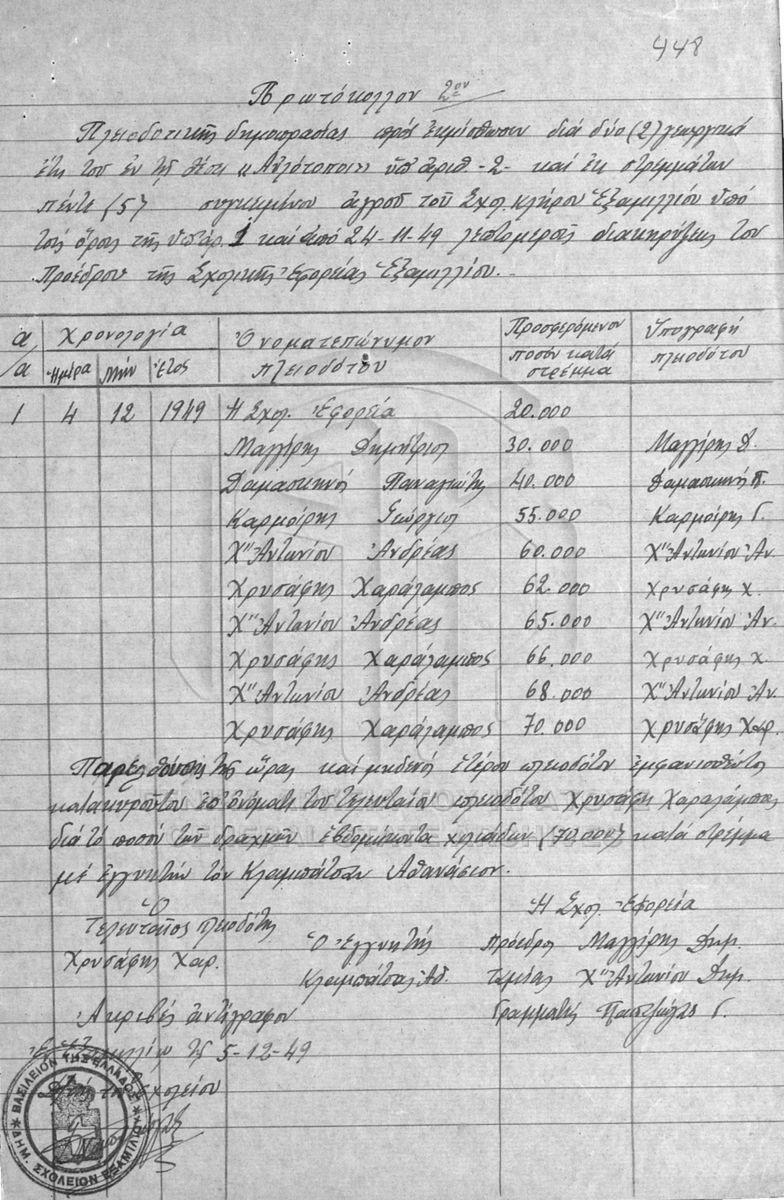 448
Πρωτόκολλον 2ον
Πλειοδοτικῆς δημοπρασίας πρὸς ἐκμίσθωσιν διά δύο (2) γεωργικά
ἔτη τοῦ ἐν τῇ θέσει «Αὐλότοποι» ὑπ' ἀριθ. -2- καί ἐκ στρεμμάτων
πέντε (5) συγκειμένου ἀγροῦ τοῦ Σχολ. κλήρου Ἑξαμιλίου ὑπό
τούς ὅρους τῆς ὑπ' ἀρ. 1 καί ἀπό 24-11-49 λεπτομεροῦς διακηρύξεως τοῦ
Προέδρου τῆς Σχολικῆς Ἐφορείας Ἑξαμιλίου.-
α/α Χρονολογία Ὀνοματεπώνυμον πλειοδότου Προσφερόμενον ποσόν κατά στρέμμα Ὑπογραφή πλειοδότου
Ἡμέρα Μήν Ἔτος
1 4 12 1949 Ἡ Σχολ. Ἐφορεία 20.000
Μαγγίρης Δημήτριος 30.000 Μαγγίρης Δ.
Δαμασκηνός Παναγιώτης 40.000 Δαμασκηνός Π.
Καρμοίρης Γεώργιος 55.000 Καρμοίρης Γ.
Χ" Ἀντωνίου Ἀνδρέας 60.000 Χ" Ἀντωνίου Ἀν.
Χρυσάφης Χαράλαμπος 62.000 Χρυσάφης Χ.
Χ" Ἀντωνίου Ἀνδρέας 65.000 Χ" Ἀντωνίου Ἀν.
Χρυσάφης Χαράλαμπος 66.000 Χρυσάφης Χ.
Χ" Ἀντωνίου Ἀνδρέας 68.000 Χ" Ἀντωνίου Ἀν.
Χρυσάφης Χαράλαμπος 70.000 Χρυσάφης Χαρ.
Παρελθούσης τῆς ὥρας καί μηδενός ἑτέρου πλειοδότου ἐμφανισθέντος
κατακυροῦται ἐπ' ὀνόματι τοῦ τελευταίου πλειοδότου Χρυσάφη Χαραλάμπους
διά τό ποσόν τῶν δραχμῶν ἑβδομήκοντα χιλιάδων (70.000) κατά στρέμμα
μέ ἐγγυητήν τόν Κλαμπάτσαν Ἀθανάσιον.
Ὁ Τελευταῖος πλειοδότης
Χρυσάφης Χαρ.
Ὁ Ἐγγυητής
Κλαμπάτσας Ἀθ.
Ἡ Σχολ. Ἐφορεία
Πρόεδρος Μαγγίρης Δημ.
Ταμίας Χ" Ἀντωνίου Δημ.
Γραμματεύς Γ.
Ἀκριβές ἀντίγραφον
Ἐν Ἑξαμιλίῳ τῇ 5-12-49
ΒΑΣΙΛΕΙΟΝ ΤΗΣ ΕΛΛΑΔΟΣ
ΔΗΜ. ΣΧΟΛΕΙΟΝ ΕΞΑΜΙΛΙΟΥ